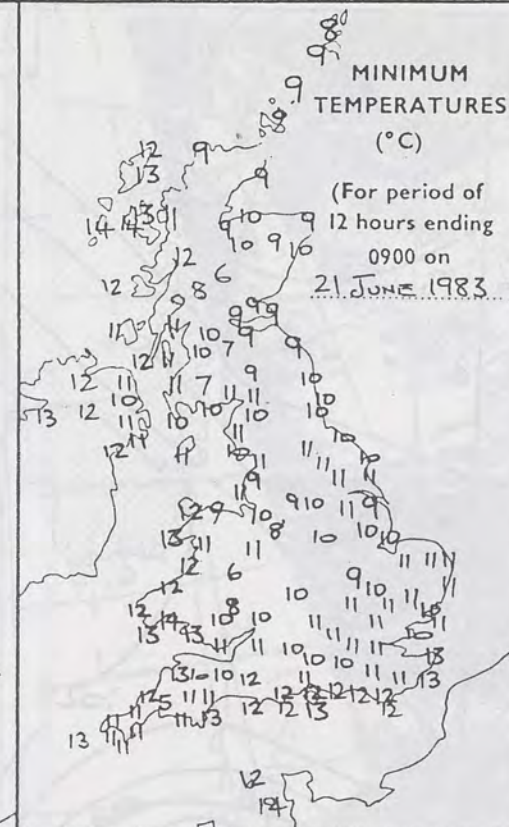 MINIMUM
TEMPERATURES
(°C)
(For period of
12 hours ending
0900 on
21 JUNE 1983
8
9
9
9
12 9
13
9
14 14 13 11
9 10 9
10 9 10
12
12 8 6
9
9 9
11 11 10 9
12 11 10 7 9
12 11 11 7 9 10
13 12 10 10 11 10
11 10 11 10
12 11 11 10
11 10 11 11 10
9 11 11 11
11
12 9 10 9 10 11 9
13 11 8 10 10 10
11 11 11 11
12 6 9 10 11
12 10 11 11 11
12 14 8 10 11 11 10
13 13 10 11 11 10
11 11 11 11
10 10 10 13
13 10 10 12 11 11 11 13
12 5 11 11 12 12 12 12 12
11 11 11 13 12 12 13 12
13 11 11
12
14